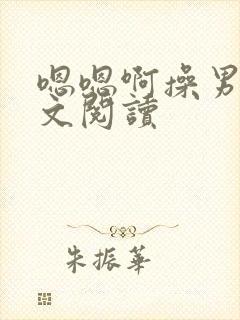 嗯嗯啊操男
文閱讀
朱振華